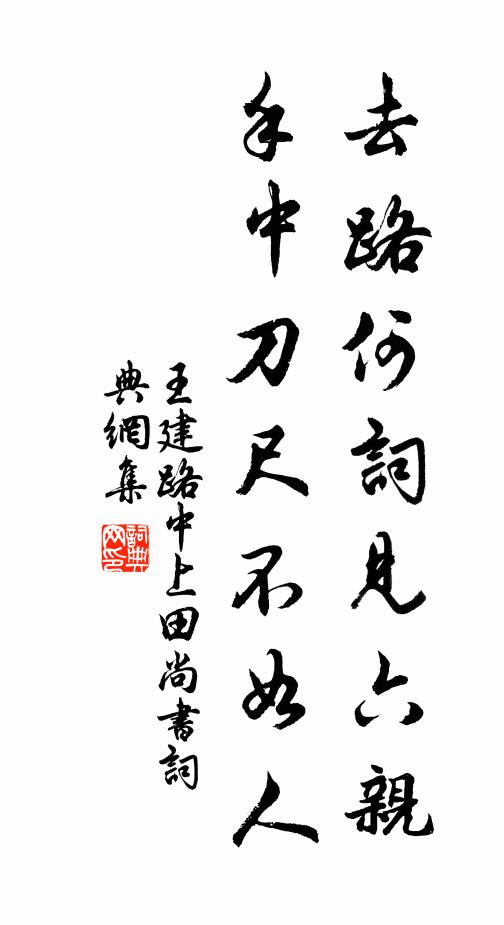 去路何詞見六親
手中刀尺不如人
王建路中上田尚書詞
典網集
詞典网印